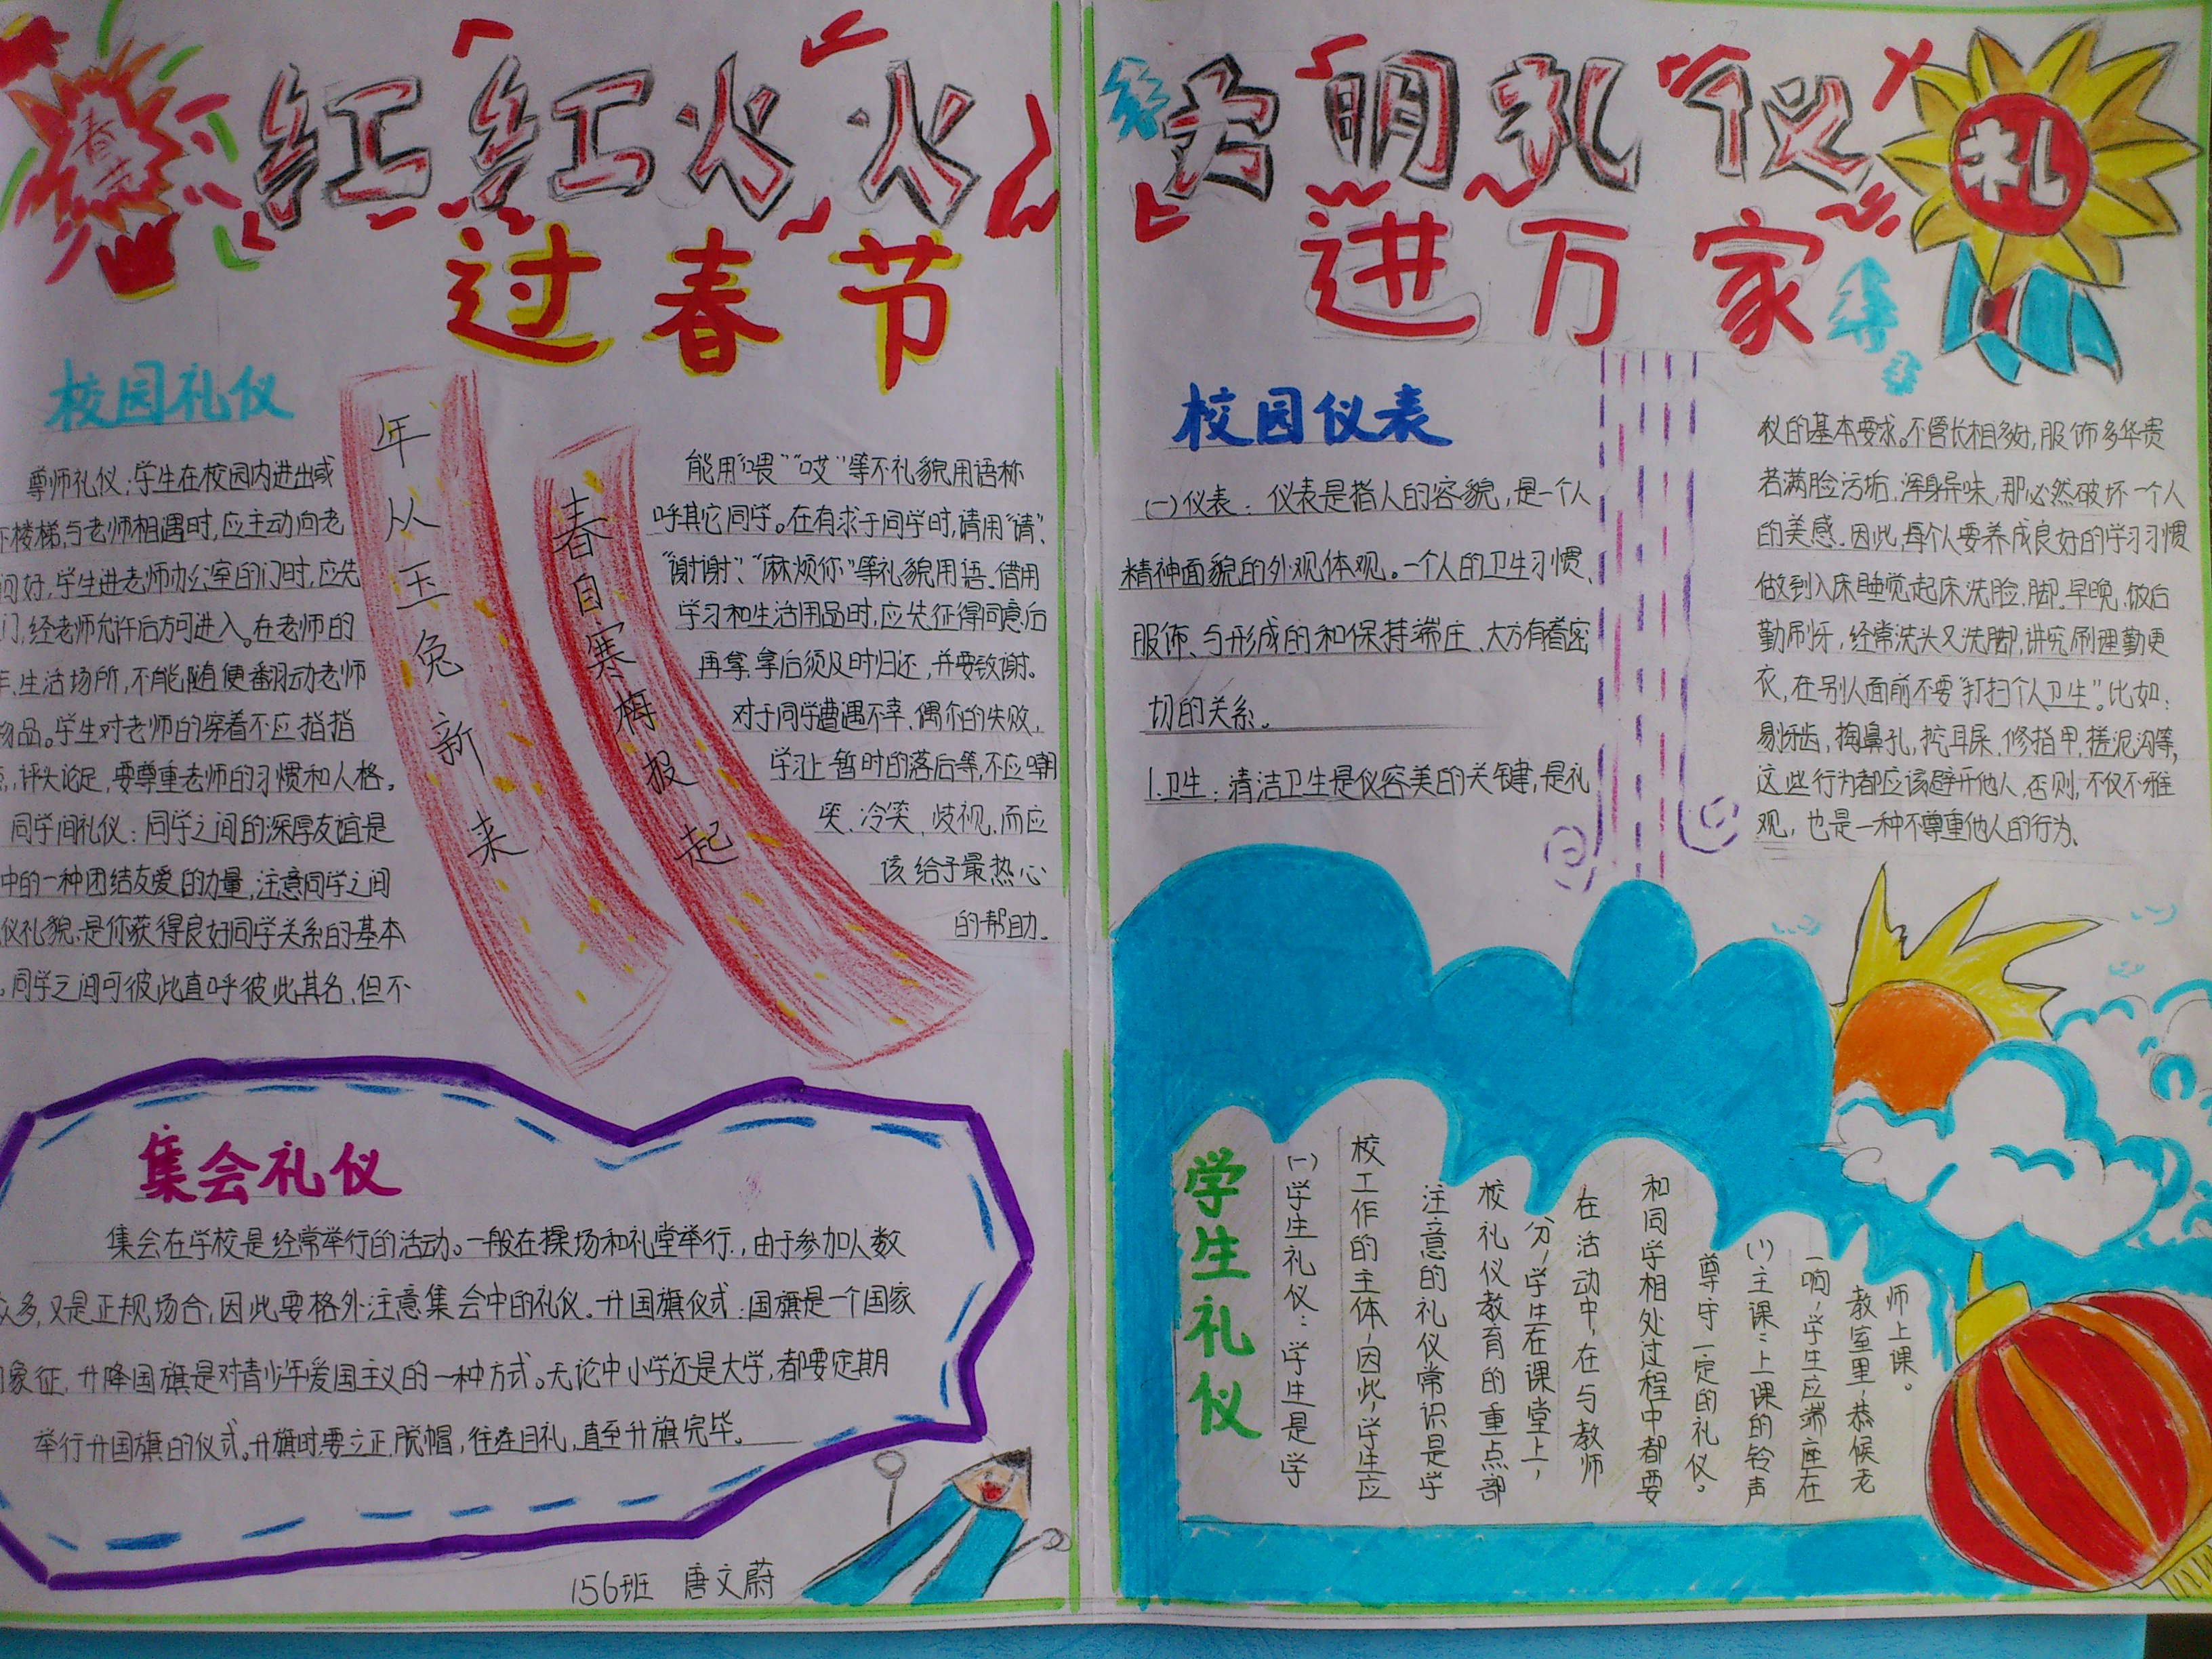 红红火火
过春节
校园礼仪
尊师礼仪:学生在校园内进出或
下楼梯与老师相遇时,应主动向老
问好,学生进老师办公室的门时,应先
门,经老师允许后方可进入。在老师的
生活场所,不能随便翻动老师
物品。学生对老师的穿着不应指指
评头论足,要尊重老师的习惯和人格。
同学间礼仪:同学之间的深厚友谊是
中的一种团结友爱的力量,注意同学之间
仪礼貌,是你获得良好同学关系的基本
。同学之间可彼此直呼彼此其名,但不
年从玉兔新来
春自寒梅报起
能用“喂”“哎”等不礼貌用语称
呼其它同学。在有求于同学时,请用“请”、
“谢谢”、“麻烦你”等礼貌用语。借用
学习和生活用品时,应先征得同意后
再拿,拿后须及时归还,并要致谢。
对于同学遭遇不幸、偶尔的失败,
学习上暂时的落后等,不应嘲
笑、冷笑、歧视,而应
该给予最热心
的帮助。
集会礼仪
集会在学校是经常举行的活动。一般在操场和礼堂举行.,由于参加人数
众多,又是正规场合,因此要格外注意集会中的礼仪。升国旗仪式:国旗是一个国家
象征,升降国旗是对青少年爱国主义的一种方式。无论中小学还是大学,都要定期
举行升国旗的仪式。升旗时要立正,脱帽,行注目礼,直至升旗完毕。
156班 唐文蔚
文明礼仪
进万家
礼
校园仪表
(一)仪表:仪表是指人的容貌,是一个人
精神面貌的外观体观。一个人的卫生习惯、
服饰、与形成的和保持端庄、大方有着密
切的关系。
1.卫生:清洁卫生是仪容美的关键,是礼
仪的基本要求。不管长相多好,服饰多华贵
若满脸污垢,浑身异味,那必然破坏一个人
的美感。因此,每个人要养成良好的学习习惯
做到入床睡觉起床洗脸、脚。早晚、饭后
勤刷牙,经常洗头又洗脚,讲究刷理勤更
衣,在别人面前不要“打扫个人卫生”。比如:
剔牙齿,掏鼻孔,挖耳屎、修指甲,搓泥沟等,
这些行为都应该避开他人,否则,不仅不雅
观,也是一种不尊重他人的行为。
学生礼仪
(一)学生礼仪:学生是学
校工作的主体,因此,学生应
注意的礼仪常识是学
校礼仪教育的重点部
分,学生在课堂上,
在活动中,在与教师
和同学相处过程中都要
尊守一定的礼仪。
(1)主课:上课的铃声
一响,学生应端座在
教室里,恭候老
师上课。